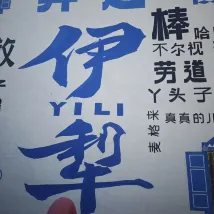 伊
YILI
犁
棒
哈
不尔视
劳道
丫头子
麦格来
真真的